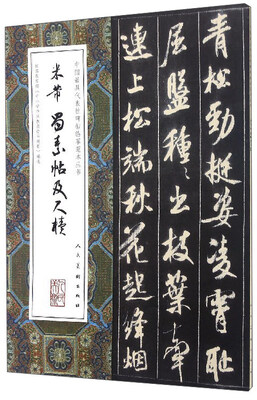 青松勁挺姿凌霄恥
屈盤種〻出枝葉牽
連上松端秋花起烽烟
中国最具代表性碑帖临摹范本丛书
米芾 蜀素帖及尺牘
人民美术出版社